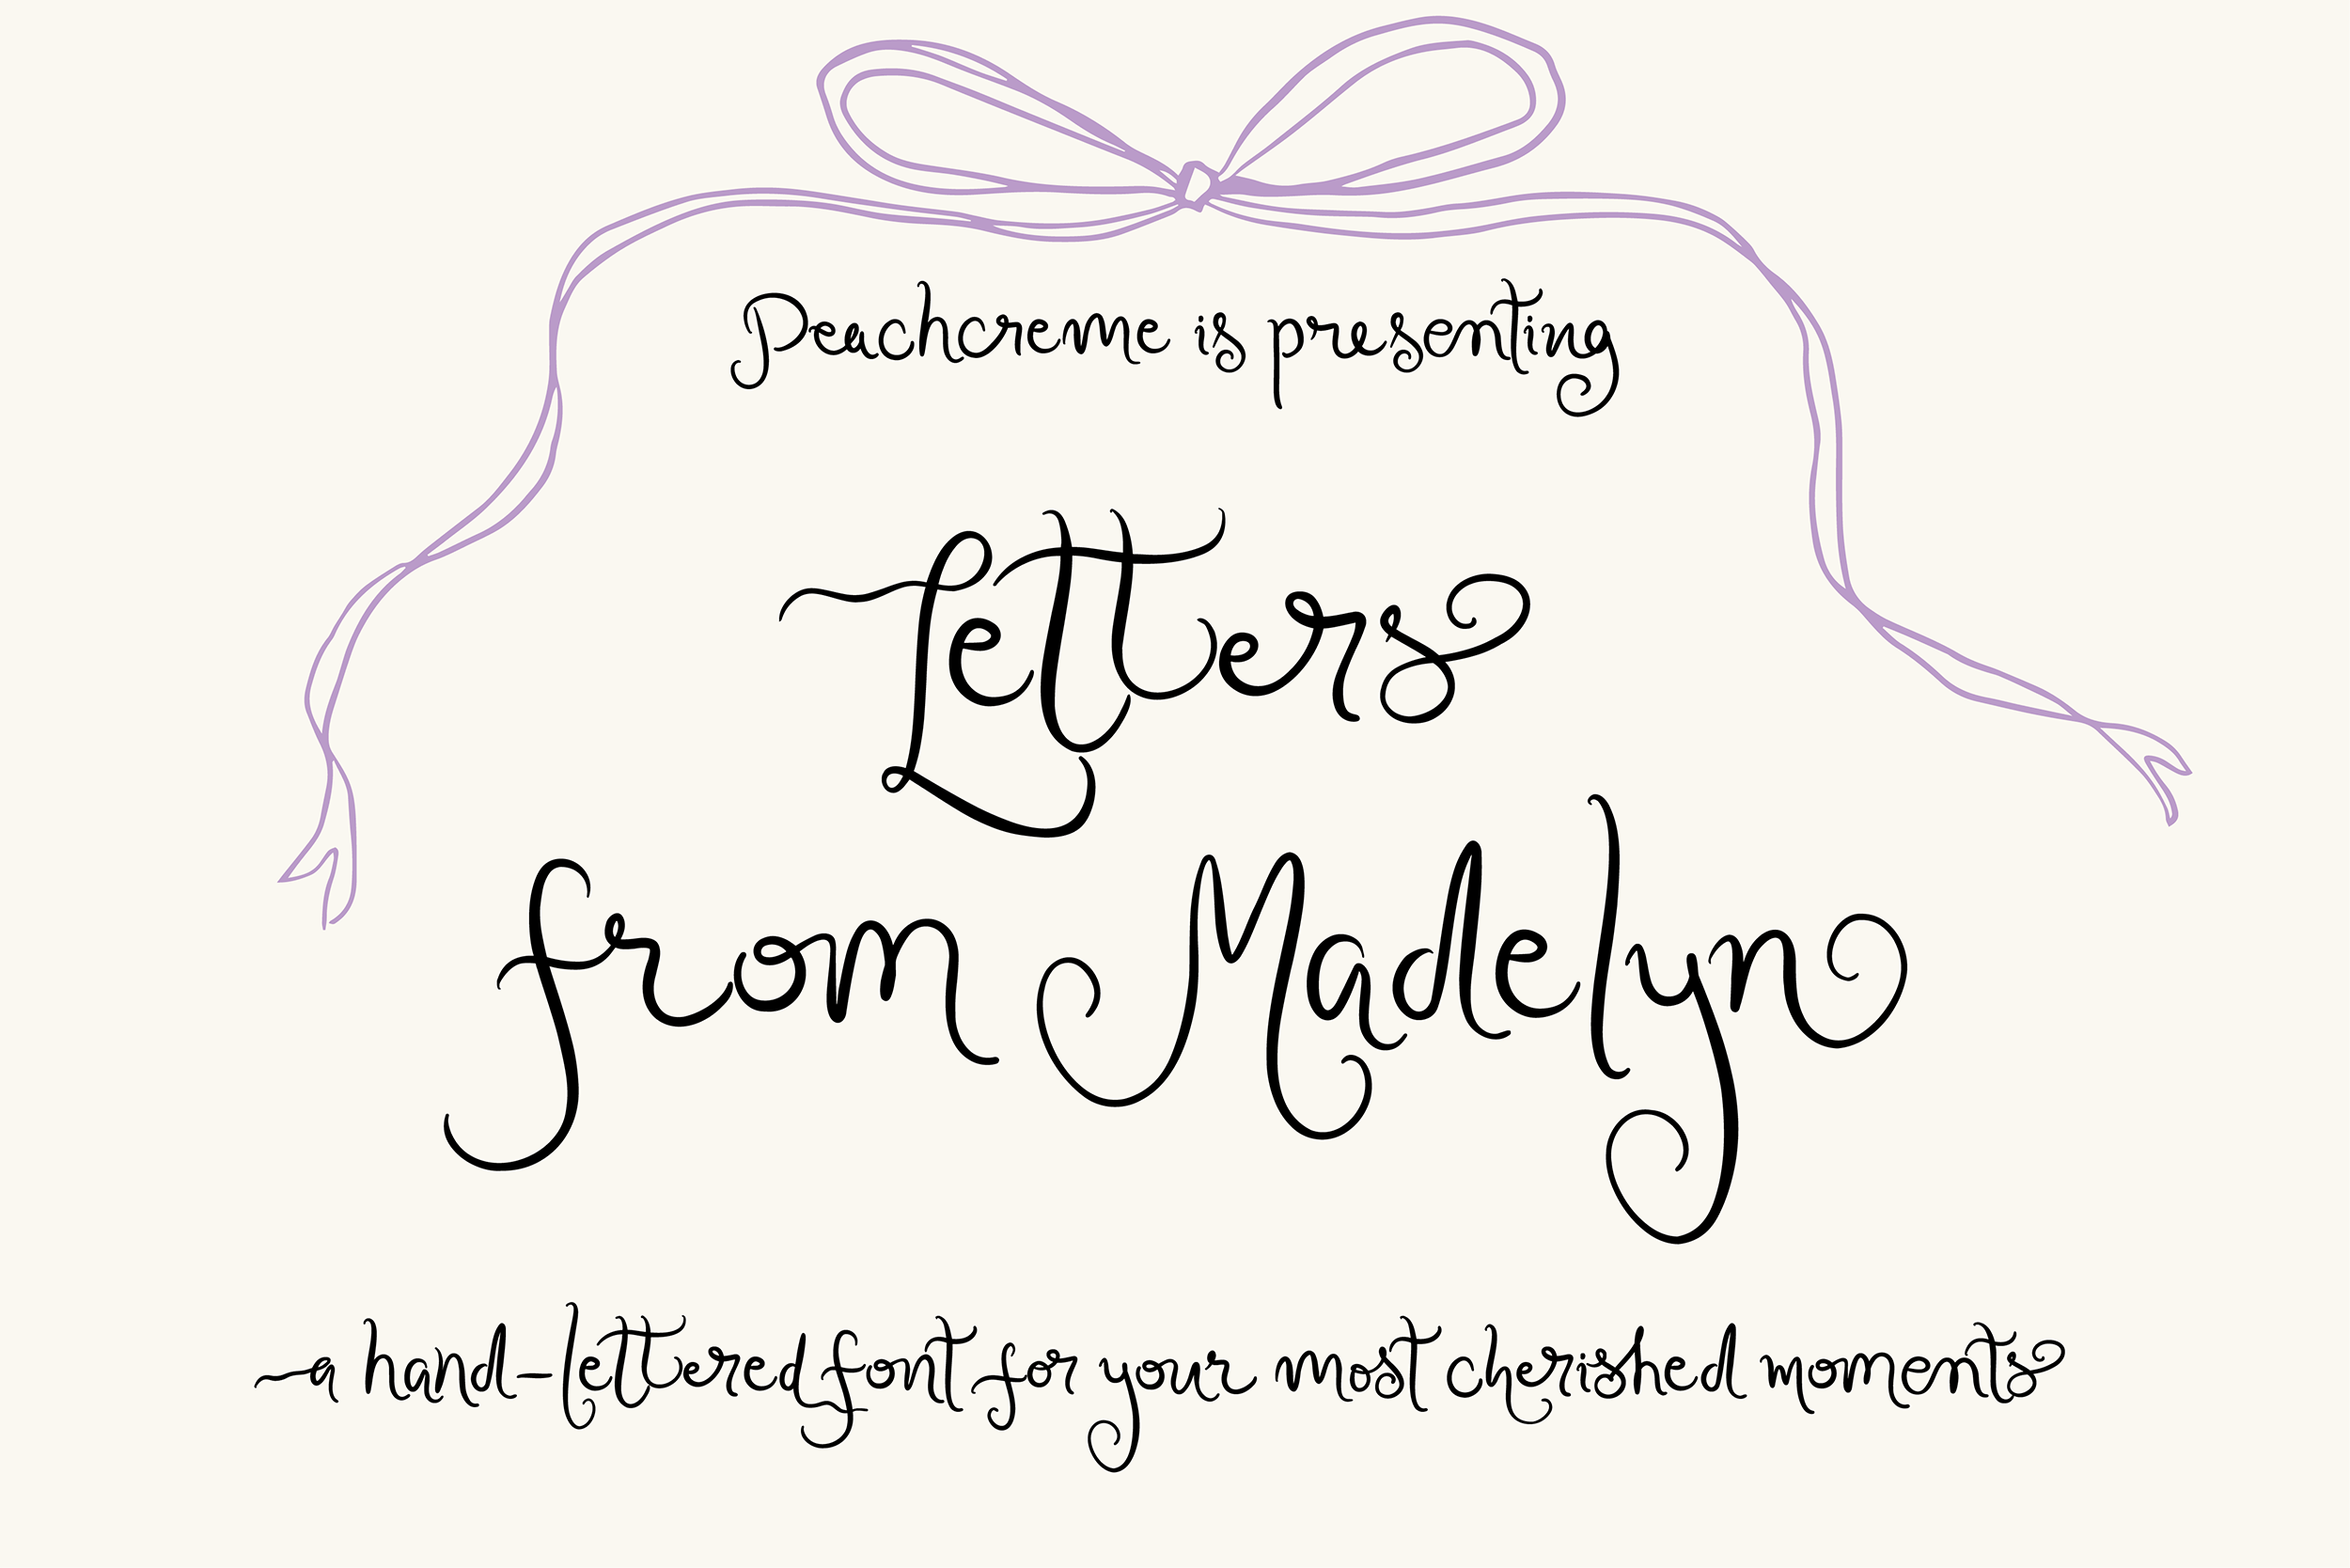 Peachcreme is presenting
Letters
from Madelyn
a hand-lettered font for your most cherished moments